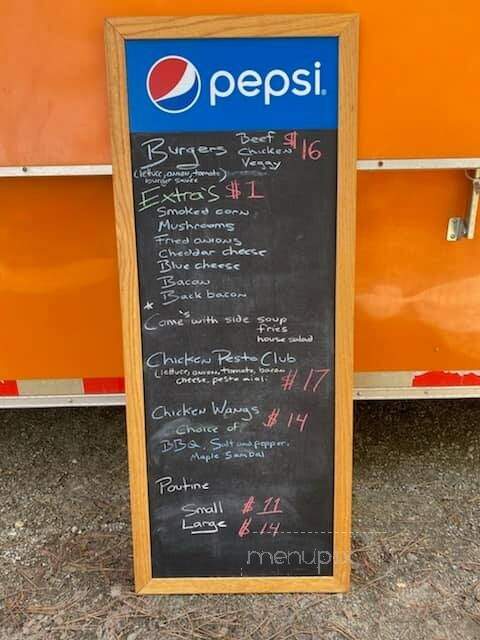 pepsi
Burgers Beef $16
Chicken
Veggy
(lettuce, onion, tomato)
burger sauce
Extra's $1
Smoked corn
Mushrooms
Fried onions
Cheddar cheese
Blue cheese
Bacon
Back bacon
* Come's with side soup
fries
house salad
Chicken Pesto Club
(lettuce, onion, tomato, bacon
cheese, pesto aioli $17
Chicken Wangs $14
Choice of
BBQ, Salt and pepper,
Maple Sambal
Poutine
Small $11
Large $14
menupix